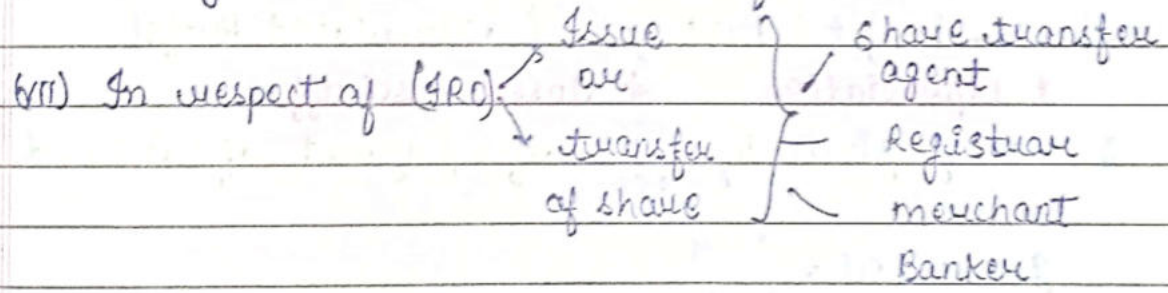 Issue
or
(VII) In respect of (IPO):
transfer
of share
share transfer
agent
Registrar
merchant
Banker